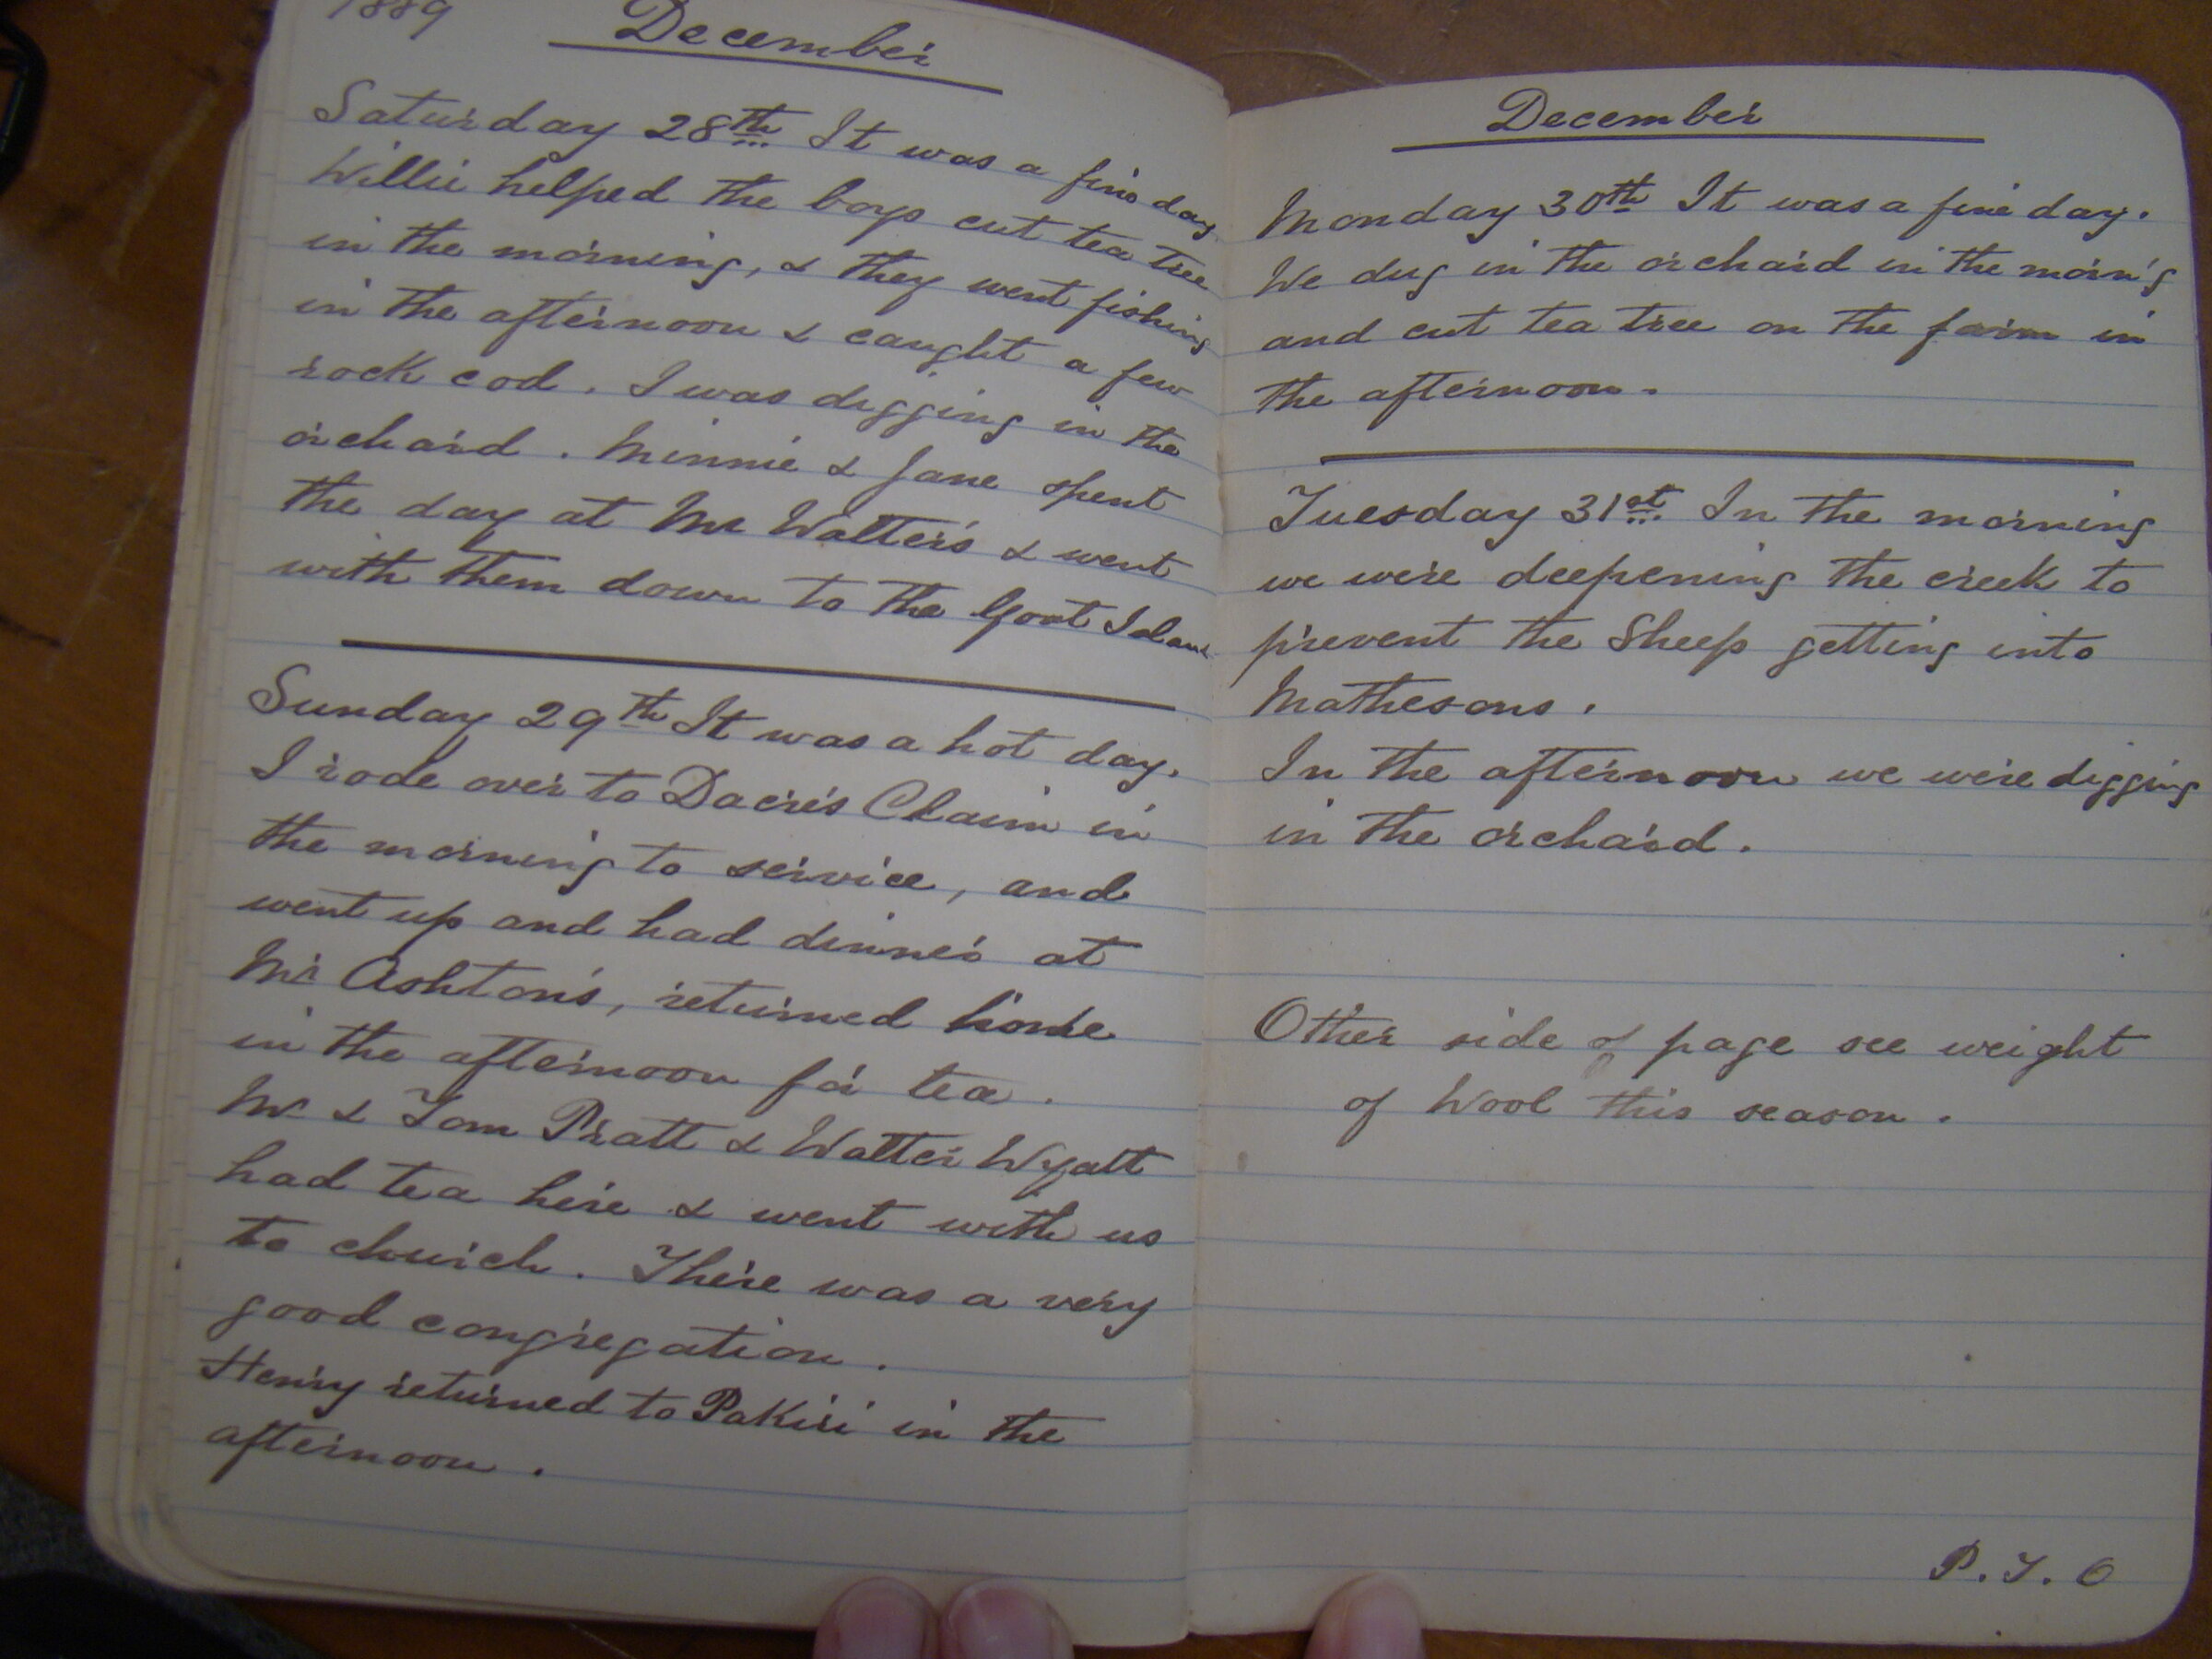 1889 December
Saturday 28th It was a fine day
Willie helped the boys cut tea tree
in the morning, & they went fishing
in the afternoon & caught a few
rock cod. I was digging in the
orchard. Minnie & Jane spent
the day at Mr Walters & went
with them down to the Goat Island
Sunday 29th It was a hot day.
I rode over to Dacres Claim in
the morning to service, and
went up and had dinner at
Mr Ashton's, returned home
in the afternoon for tea.
Mr & Tom Pratt & Walter Wyatt
had tea here & went with us
to church. There was a very
good congregation.
Henry returned to Pakiri in the
afternoon.
December
Monday 30th It was a fine day.
We dug in the orchard in the morn'g
and cut tea tree on the farm in
the afternoon.
Tuesday 31st In the morning
we were deepening the creek to
prevent the Sheep getting into
Mathesons.
In the afternoon we were digging
in the orchard.
Other side of page see weight
of Wool this season.
P.T.O